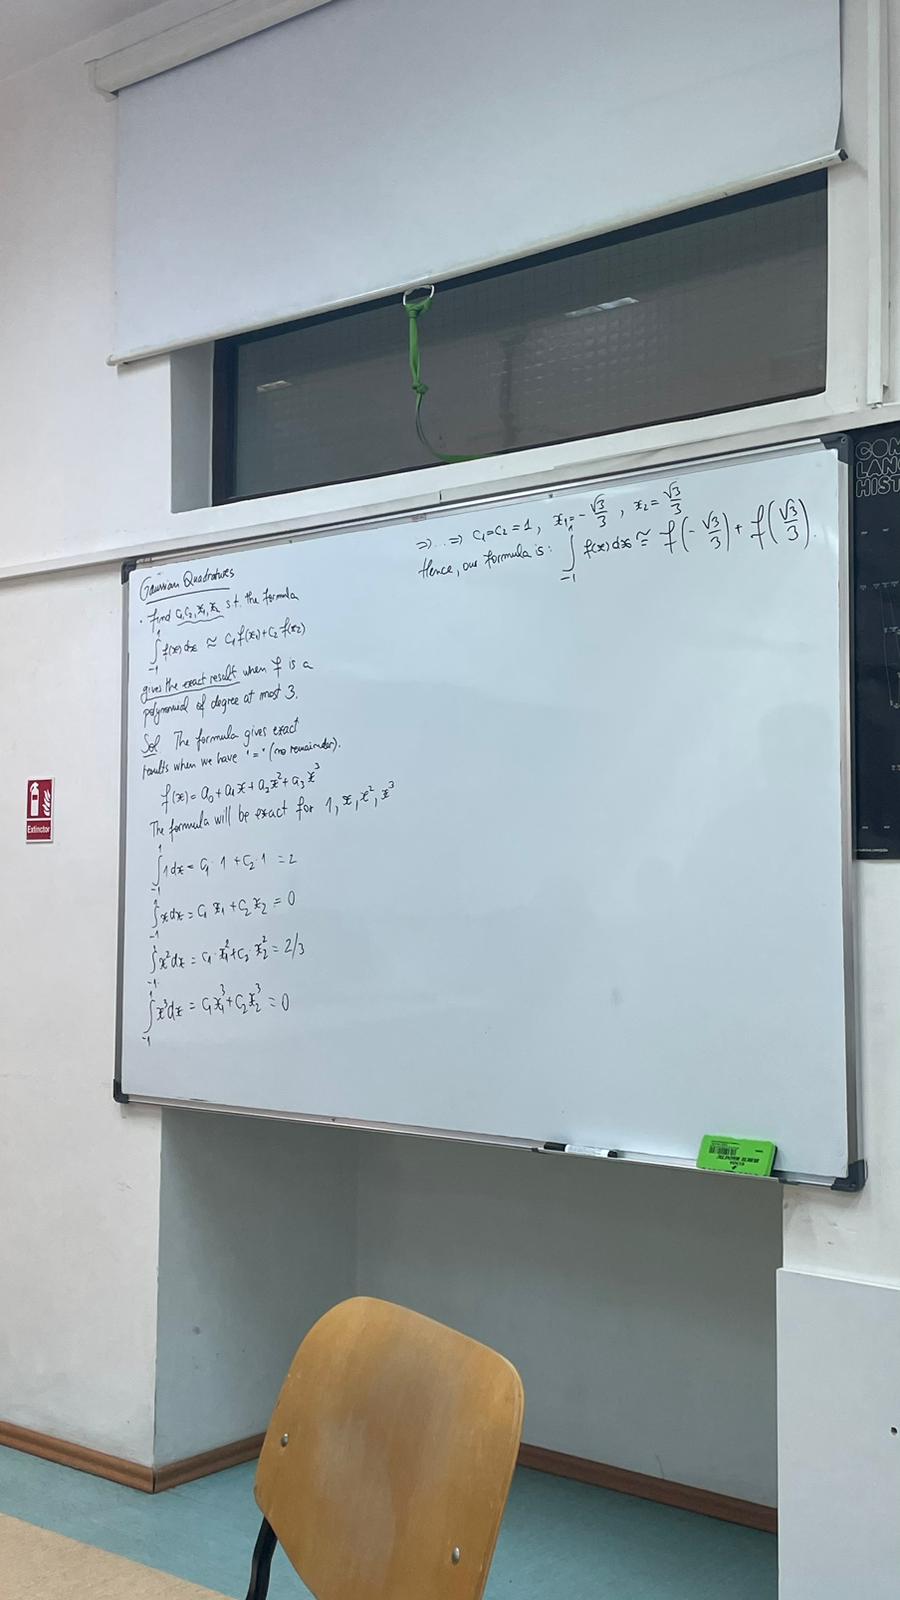 Gaussian Quadratures
• Find c₁, c₂, x₁, x₂ s.t. the formula
∫₋₁¹ f(x) dx ≈ c₁ f(x₁) + c₂ f(x₂)
gives the exact result when f is a
polynomial of degree at most 3.
Sol The formula gives exact
results when we have "=" (no remainder).
f(x) = a₀ + a₁x + a₂x² + a₃x³
The formula will be exact for 1, x, x², x³
∫₋₁¹ 1 dx = c₁ · 1 + c₂ · 1 = 2
∫₋₁¹ x dx = c₁ x₁ + c₂ x₂ = 0
∫₋₁¹ x² dx = c₁ · x₁² + c₂ · x₂² = 2/3
∫₋₁¹ x³ dx = c₁ x₁³ + c₂ x₂³ = 0
⇒ ... ⇒ c₁ = c₂ = 1, x₁ = -√3/3, x₂ = √3/3
Hence, our formula is: ∫₋₁¹ f(x) dx ≅ f(-√3/3) + f(√3/3).
Extinctor
COM
LANG
HIST